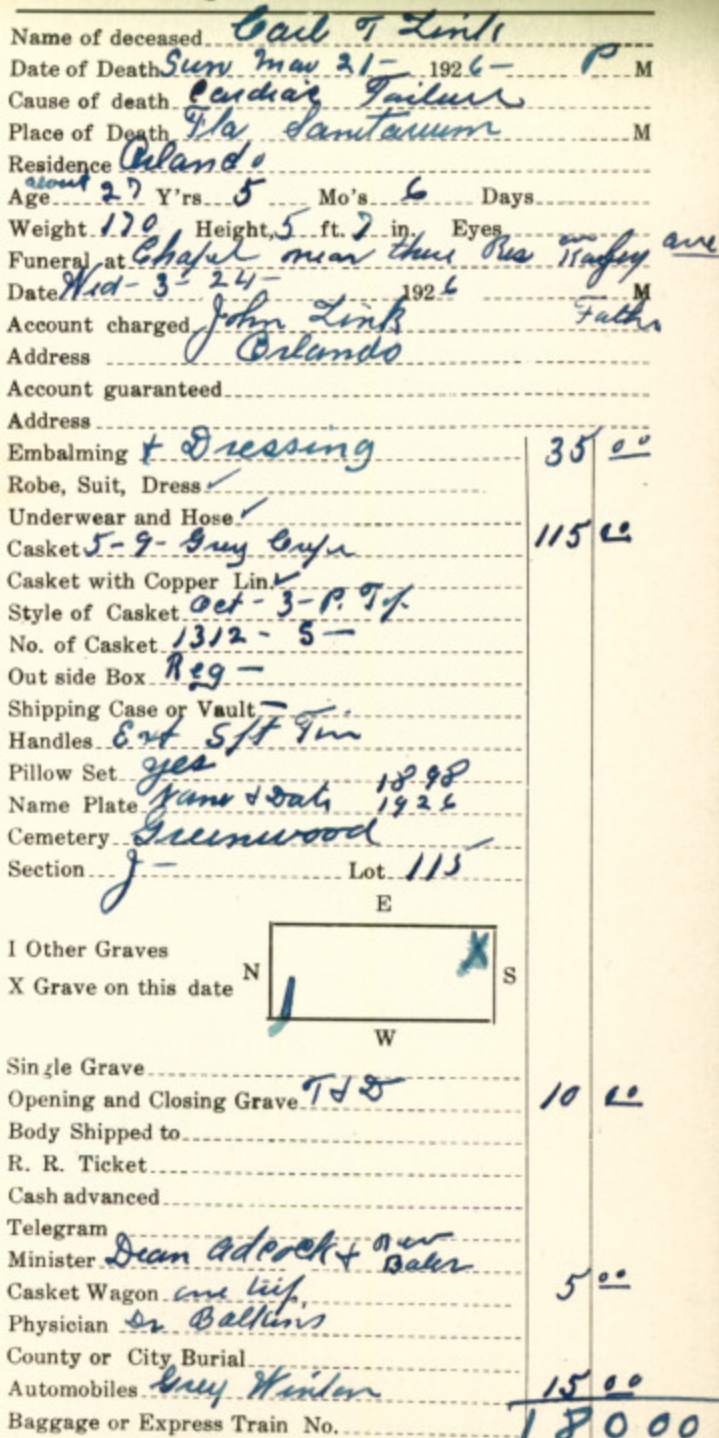 Name of deceased Carl T Link
Date of Death Sun Mar 21- 1926- P M
Cause of death Cardiac Failure
Place of Death Fla Sanitarium M
Residence Orlando
about
Age 27 Y'rs 5 Mo's 6 Days
Weight 170 Height, 5 ft. 7 in. Eyes
Funeral at Chapel near there Res on ave
Date Wed- 3- 24- 1926 M
Account charged John Link Father
Address Orlando
Account guaranteed
Address
Embalming & Dressing 35 00
Robe, Suit, Dress ✓
Underwear and Hose ✓
Casket 5-9- Grey Crepe 115 00
Casket with Copper Lin. ✓
Style of Casket Oct- 3-P. Top
No. of Casket 1312- S-
Out side Box Reg-
Shipping Case or Vault -
Handles Ext S/ft Tin
Pillow Set yes 1898
Name Plate Name & Date 1926
Cemetery Greenwood
Section J- Lot 115
E
I Other Graves
N S
X Grave on this date
X
W
Single Grave
Opening and Closing Grave T & D 10 00
Body Shipped to
R. R. Ticket
Cash advanced
Telegram
Minister Dean Adcock & Rev Baker
Casket Wagon one trip 5 00
Physician Dr
County or City Burial
Automobiles Grey Winton 15 00
Baggage or Express Train No. 180 00